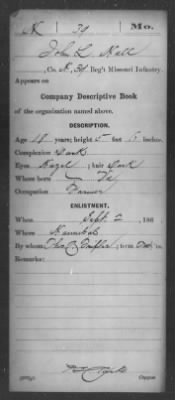 K 39 Mo.
John L Hall
, Co. K, 39 Reg't Missouri Infantry.
Appears on
Company Descriptive Book
of the organization named above.
DESCRIPTION.
Age 18 years; height 5 feet inches.
Complexion Dark
Eyes Hazel ; hair Dark
Where born
Occupation Farmer
ENLISTMENT.
When Sept. 2 , 186
Where Hannibal
By whom ; term y's.
Remarks:
Copyist.